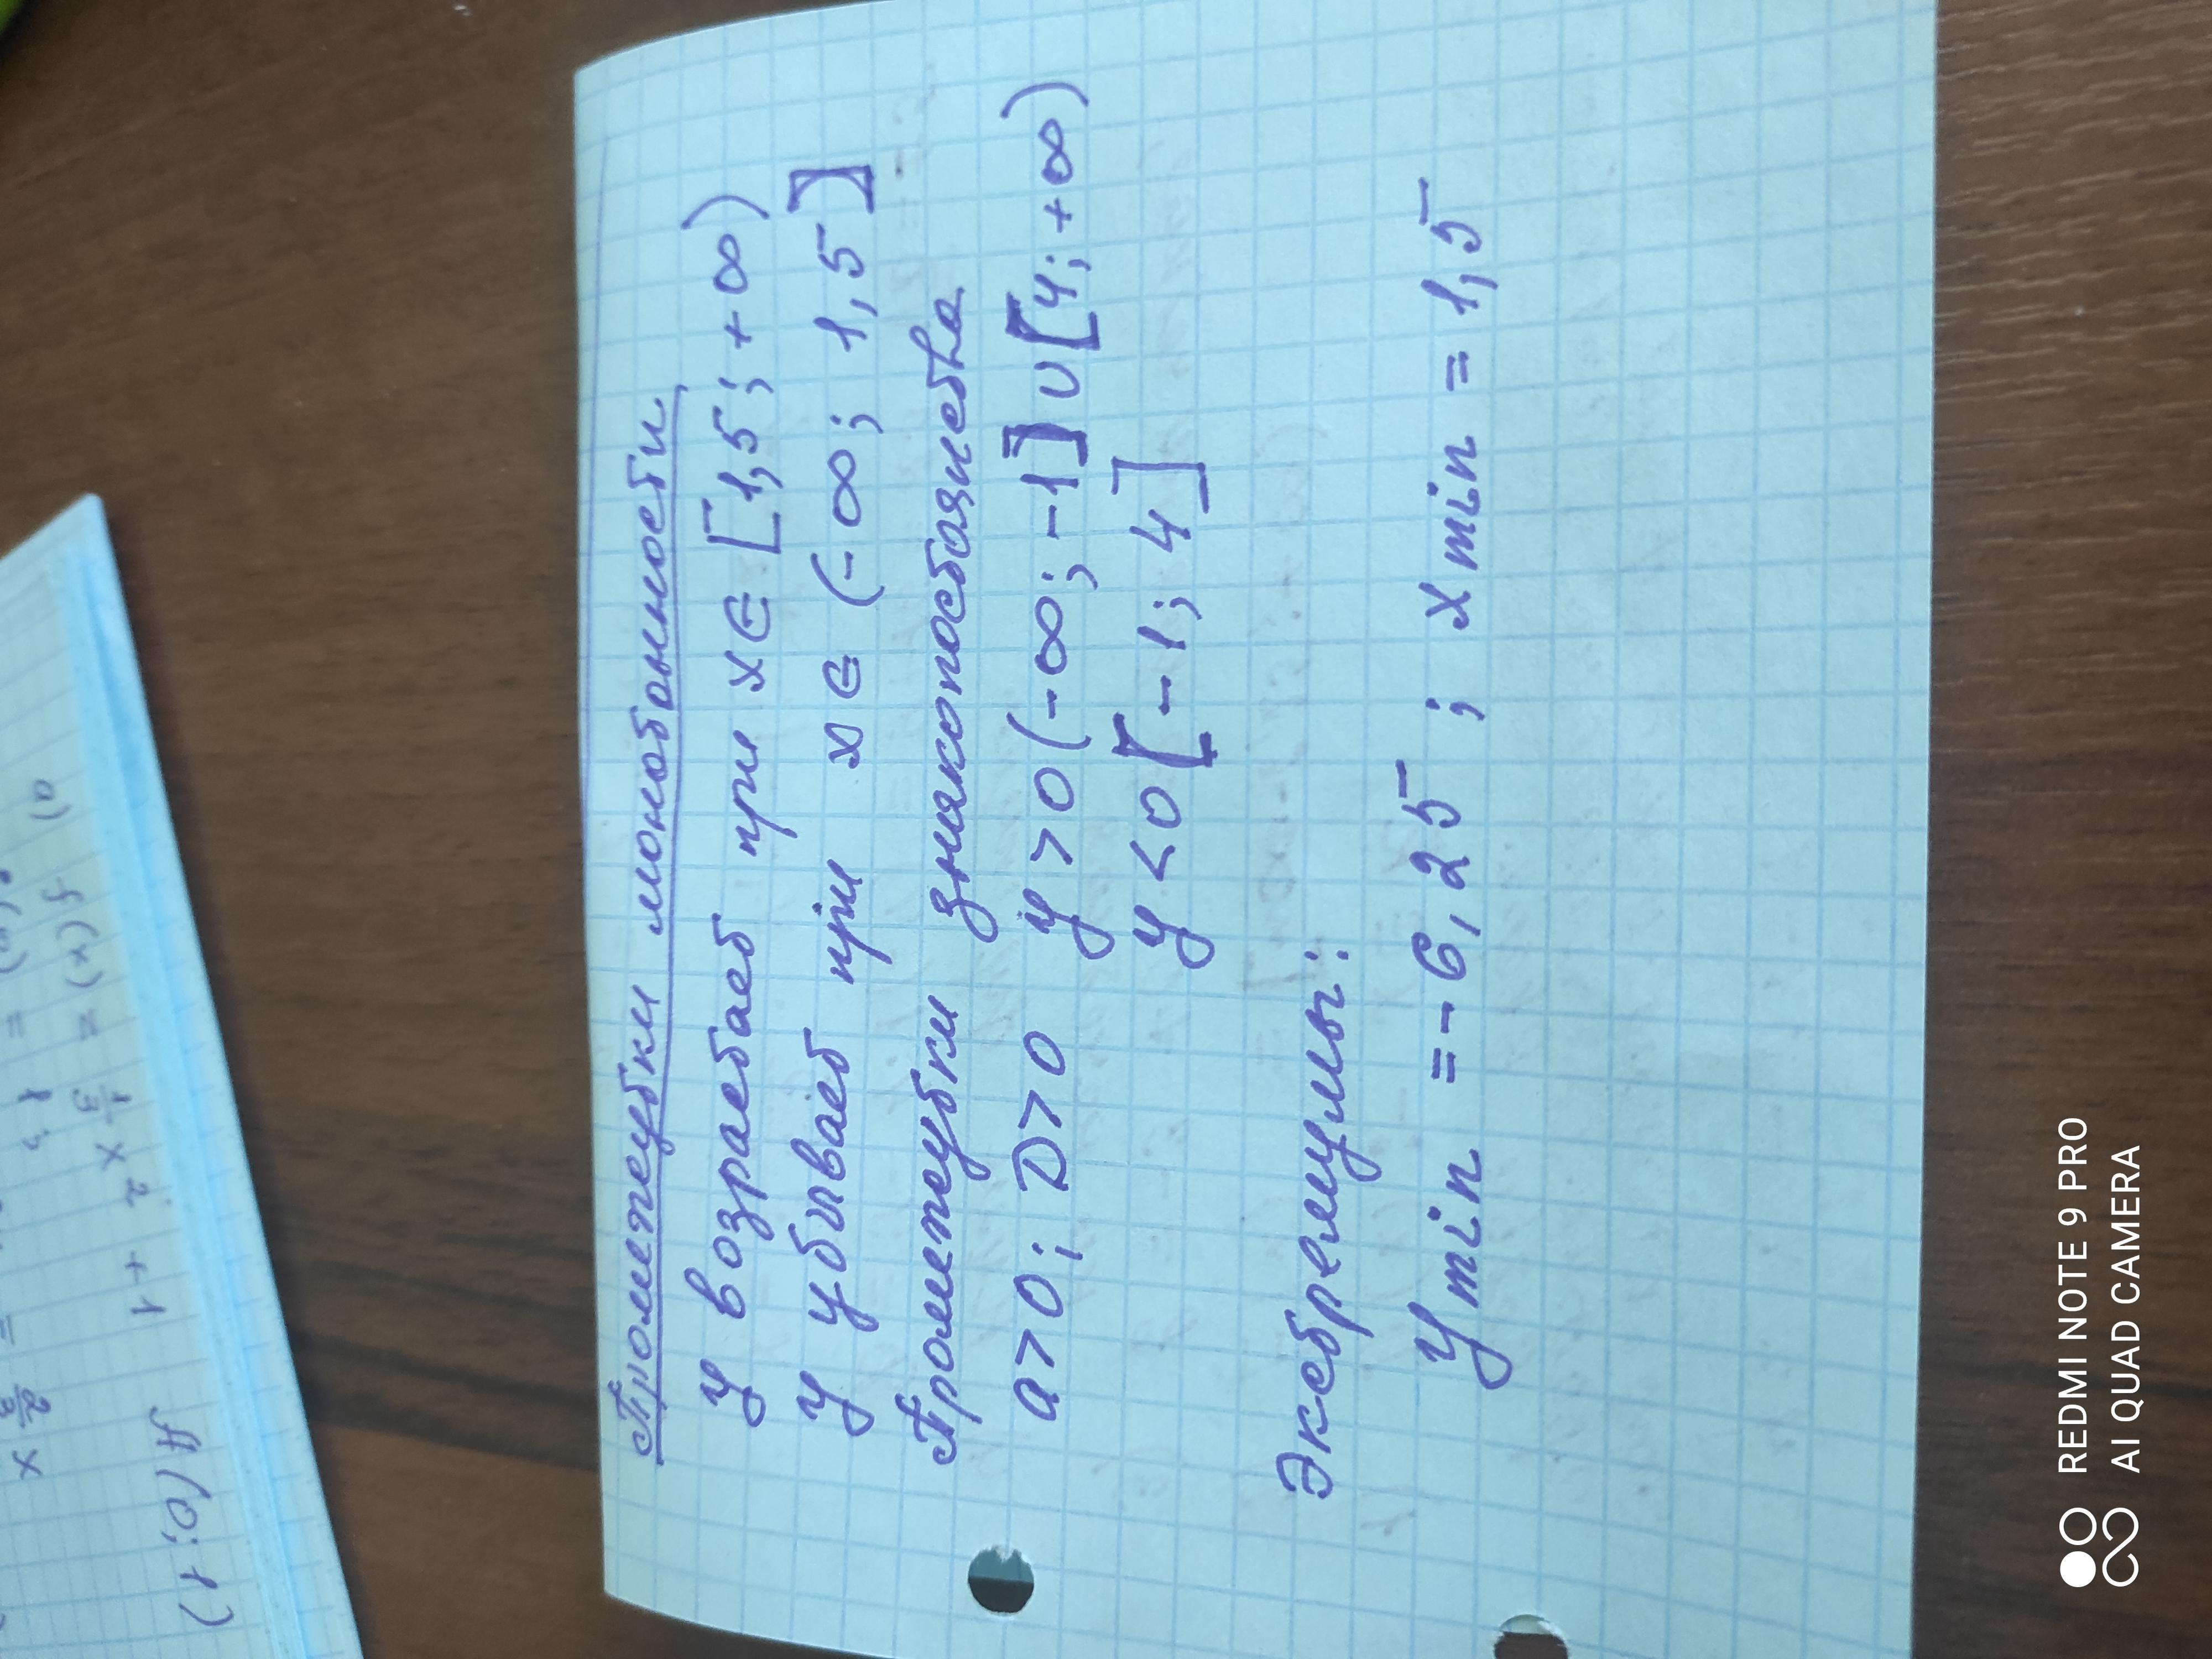 Промежутки монотонности
y возрастает при x∈[1,5; +∞)
y убывает при x∈(-∞; 1,5]
Промежутки знакопостоянства
a>0; D>0 y>0(-∞; -1]∪[4; +∞)
y<0[-1; 4]
Экстремумы:
y min = -6,25; x min = 1,5
а) f(x) = 1/3 x² + 1 A(0; 1)
REDMI NOTE 9 PRO
AI QUAD CAMERA